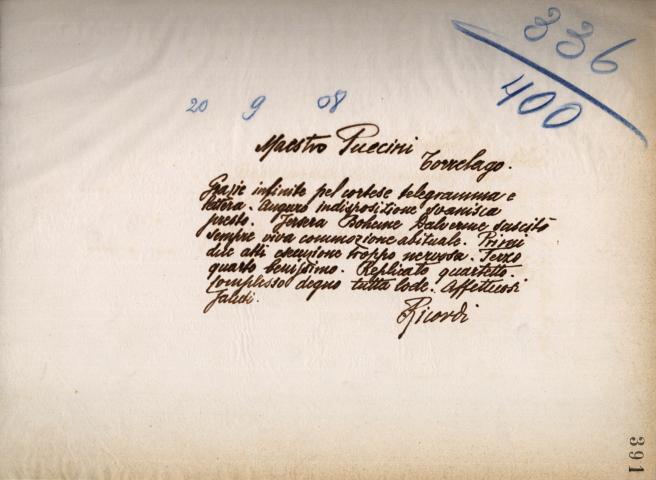 336
400
20 9 08
Maestro Puccini
Torrelago.
Grazie infinite pel cortese telegramma e
lettera. Auguro indisposizione svanisca
presto. Jersera Boheme Dalverme suscitò
sempre viva commozione abituale. Primi
due atti esecuzione troppo nervosa. Terzo
quarto benissimo. Replicato quartetto.
Complesso degno tutta lode. Affettuosi
saluti.
Ricordi
391